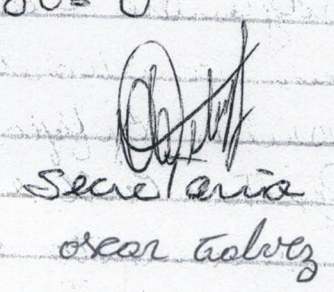 Secretaria
oscar Galvez